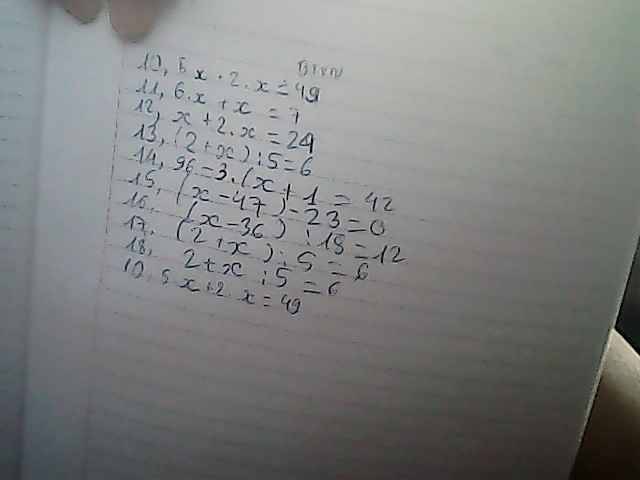 10, 5 x · 2 · x = 49
11, 6 · x + x = 7
12, x + 2 · x = 24
13, (2 + x) : 5 = 6
14, 96 = 3 · (x + 1 = 42
15, (x - 47) - 23 = 0
16, (x - 36) : 18 = 12
17, (2 + x) : 5 = 6
18, 2 + x : 5 = 6
10, 5 x + 2 · x = 49